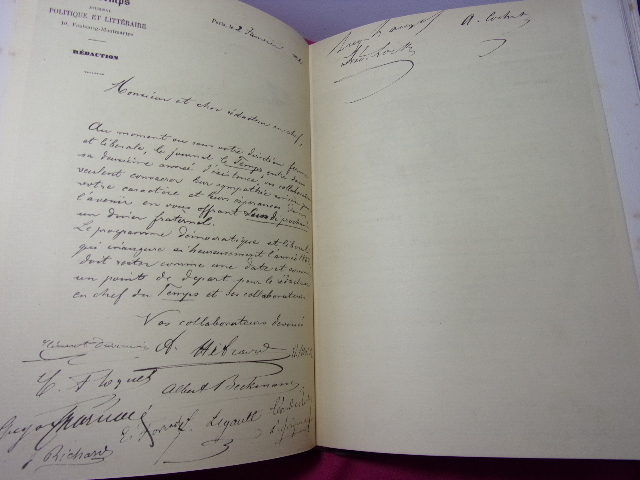 Temps
JOURNAL
POLITIQUE ET LITTÉRAIRE
10, Faubourg-Montmartre
Paris, le 2 Janvier
RÉDACTION
Monsieur et cher rédacteur en chef,
Au moment où sous votre direction ferme
et libérale, le journal le Temps entre dans
sa deuxième année d'existence, vos collaborateurs
veulent consacrer leur sympathie
votre caractère et leurs espérances dans
l'avenir en vous offrant
un dîner fraternel.
Le programme démocratique et libéral
qui inaugure si heureusement l'année
doit rester comme une date et comme
un point de départ pour le rédacteur
en chef du Temps et ses collaborateurs.
Vos collaborateurs dévoués
A. Hébrard
C. Floquet
Albert Beckmann
Legault
J Richard
A. Cochut